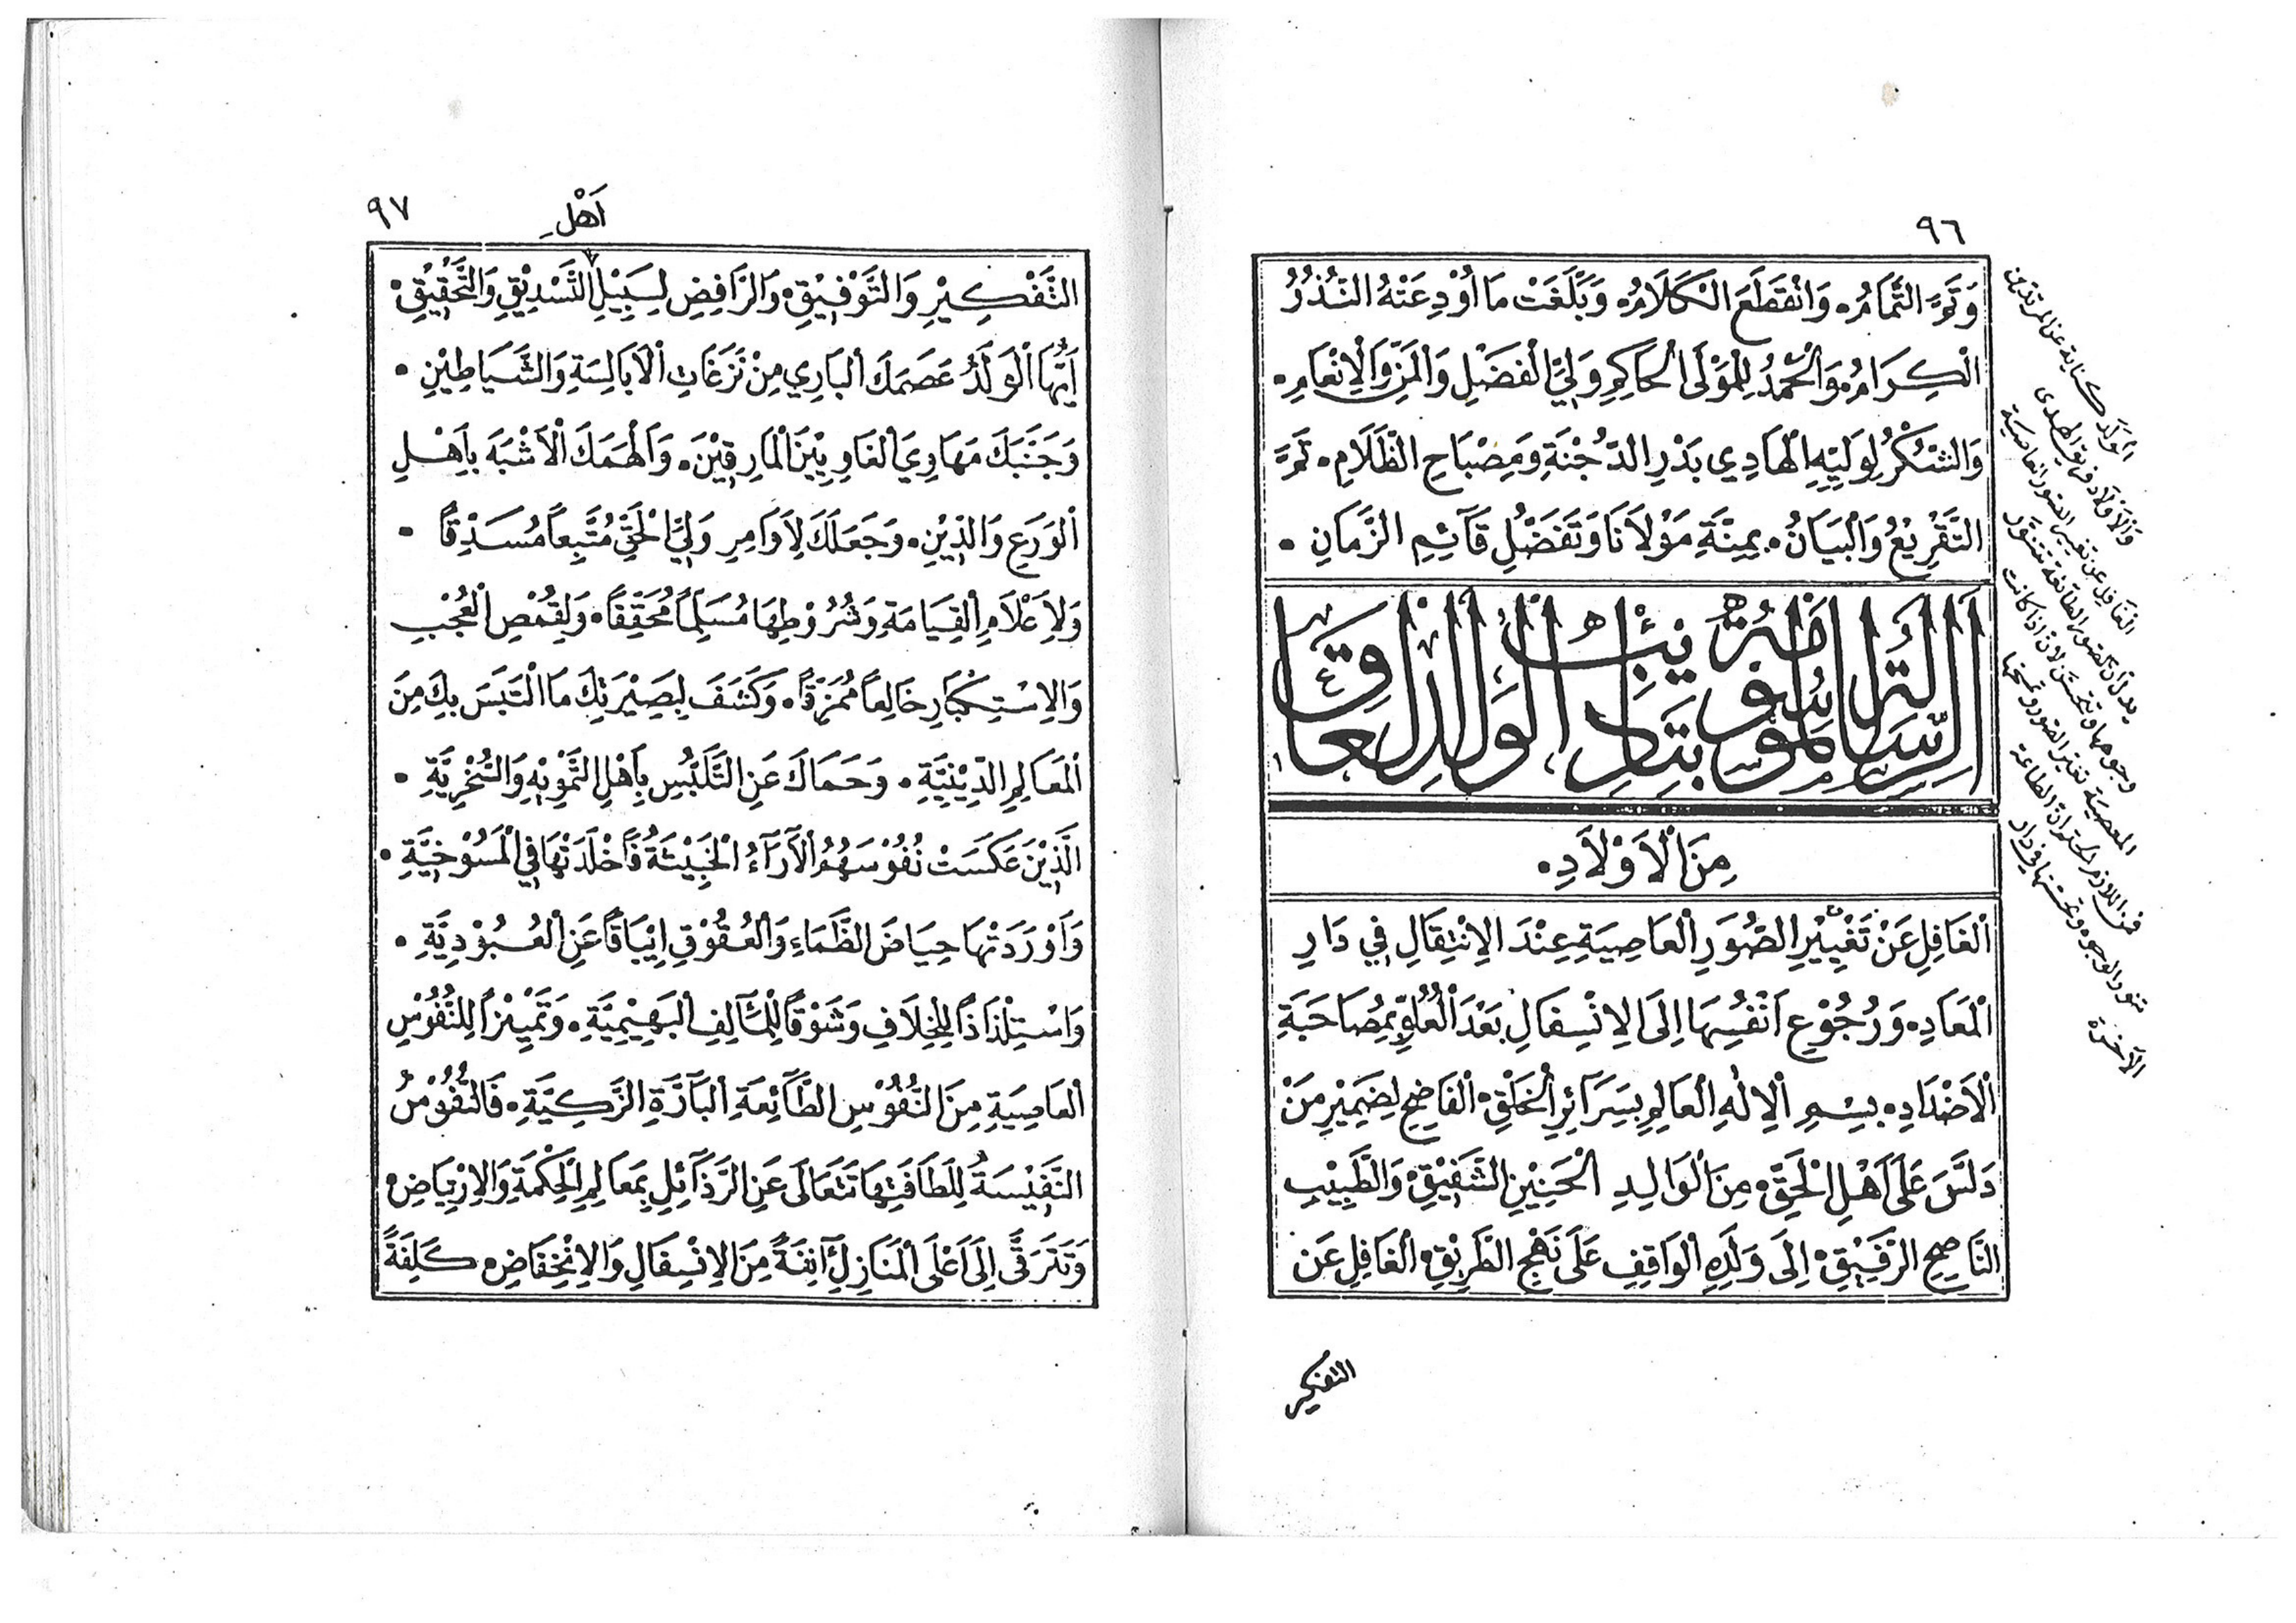 ٩٦
وَتَمَّ التَّمَامُ. وَانْقَطَعَ الْكَلَامُ. وَبَلَّغَتْ مَا أُوْدِعَتْهُ النُّذُرُ
الْكِرَامُ. وَالْحَمْدُ لِلْمَوْلَى الْحَاكِمِ وَلِيِّ الْفَضْلِ وَالْمَنِّ وَالْاِنْعَامِ.
وَالشُّكْرُ لِوَلِيِّهِ الْهَادِي بَدْرِ الدُّجُنَّةِ وَمِصْبَاحِ الظَّلَامِ. تَمَّ
التَّقْرِيْعُ وَالْبَيَانُ. بِمِنَّةِ مَوْلَانَا وَتَفَضُّلِ قَآئِمِ الزَّمَانِ.
اَلرِّسَالَةُ الْمَوْسُوْمَةُ بِتَأْنِيْبِ الْوَلَدِ الْعَاقِّ
مِنَ الْاَوْلَادِ.
الْغَافِلِ عَنْ تَغْيِيْرِ الصُّوَرِ الْعَاصِيَةِ عِنْدَ الاِنْتِقَالِ فِي دَارِ
الْمَعَادِ. وَرُجُوْعِ اَنْفُسِهَا اِلَى الاِنْسِفَالِ بَعْدَ الْعُلُوِّ بِمُصَاحَبَةِ
الْاَضْدَادِ. بِسْمِ الْاِلٰهِ الْعَالِمِ بِسَرَائِرِ الْخَلْقِ. الْفَاضِحِ لِضَمِيْرِ مَنْ
دَلَّسَ عَلَى اَهْلِ الْحَقِّ. مِنَ الْوَالِدِ الْحَنِيْنِ الشَّفِيْقِ. وَالطَّبِيْبِ
النَّاصِحِ الرَّفِيْقِ. اِلَى وَلَدِهِ الْوَاقِفِ عَلَى نَهْجِ الطَّرِيْقِ. الْغَافِلِ عَن
التفكير
الولد كناية عن المرتدين
والاولاد فريق الهدى
الغافل عن تغيير الصور العاصية
الآخرة
٩٧
اَهْلِ
التَّفْكِيْرِ وَالتَّوْفِيْقِ. وَالرَّافِضِ لِسَبِيْلِ التَّسْدِيْقِ وَالتَّحْقِيْقِ.
اَيُّهَا الْوَلَدُ عَصَمَكَ الْبَارِي مِنْ نَزَغَاتِ الْاَبَالِسَةِ وَالشَّيَاطِيْنِ.
وَجَنَّبَكَ مَهَاوِيَ الْغَاوِيِيْنَ الْمَارِقِيْنَ. وَاَلْهَمَكَ الْاَشْبَهَ بِاَهْلِ
الْوَرَعِ وَالدِّيْنِ. وَجَعَلَكَ لِاَوَامِرِ وَلِيِّ الْحَقِّ مُتَّبِعاً مُسَدِّقاً.
وَلِاَعْلَامِ الْقِيَامَةِ وَشُرُوْطِهَا مُسَلِّماً مُحَقِّقاً. وَلِقُمُصِ الْعُجْبِ
وَالاِسْتِكْبَارِ خَالِعاً مُمَزِّقاً. وَكَشَفَ لِبَصِيْرَتِكَ مَا الْتَبَسَ بِكَ مِنَ
الْمَعَالِمِ الدِّيْنِيَّةِ. وَحَمَاكَ عَنِ التَّلَبُّسِ بِاَهْلِ التَّمْوِيْهِ وَالسُّخْرِيَّةِ.
الَّذِيْنَ عَكَسَتْ نُفُوْسَهُمُ الْآرَآءُ الْخَبِيْثَةُ فَاَخْلَدَتْهَا فِي الْمَسُوْخِيَّةِ.
وَاَوْرَدَتْهَا حِيَاضَ الظَّمَاءِ وَالْعُقُوْقِ اِيْبَاقاً عَنِ الْعُبُوْدِيَّةِ.
وَاسْتِلْذَاذاً لِلْخِلَافِ وَشَوْقاً لِلْمَآلِفِ الْبَهِيْمِيَّةِ. وَتَمْيِيْزاً لِلنُّفُوْسِ
الْعَاصِيَةِ مِنَ النُّفُوْسِ الطَّآئِعَةِ الْبَآرَّةِ الزَّكِيَّةِ. فَالنُّفُوْسُ
النَّفِيْسَةُ لِلَطَافَتِهَا تَتَعَالَى عَنِ الرَّذَآئِلِ بِمَعَالِمِ الْحِكْمَةِ وَالاِرْتِيَاضِ.
وَتَتَرَقَّى اِلَى اَعْلَى الْمَنَازِلِ آنِفَةً مِنَ الاِنْسِفَالِ وَالاِنْخِفَاضِ. كَلِفَةً